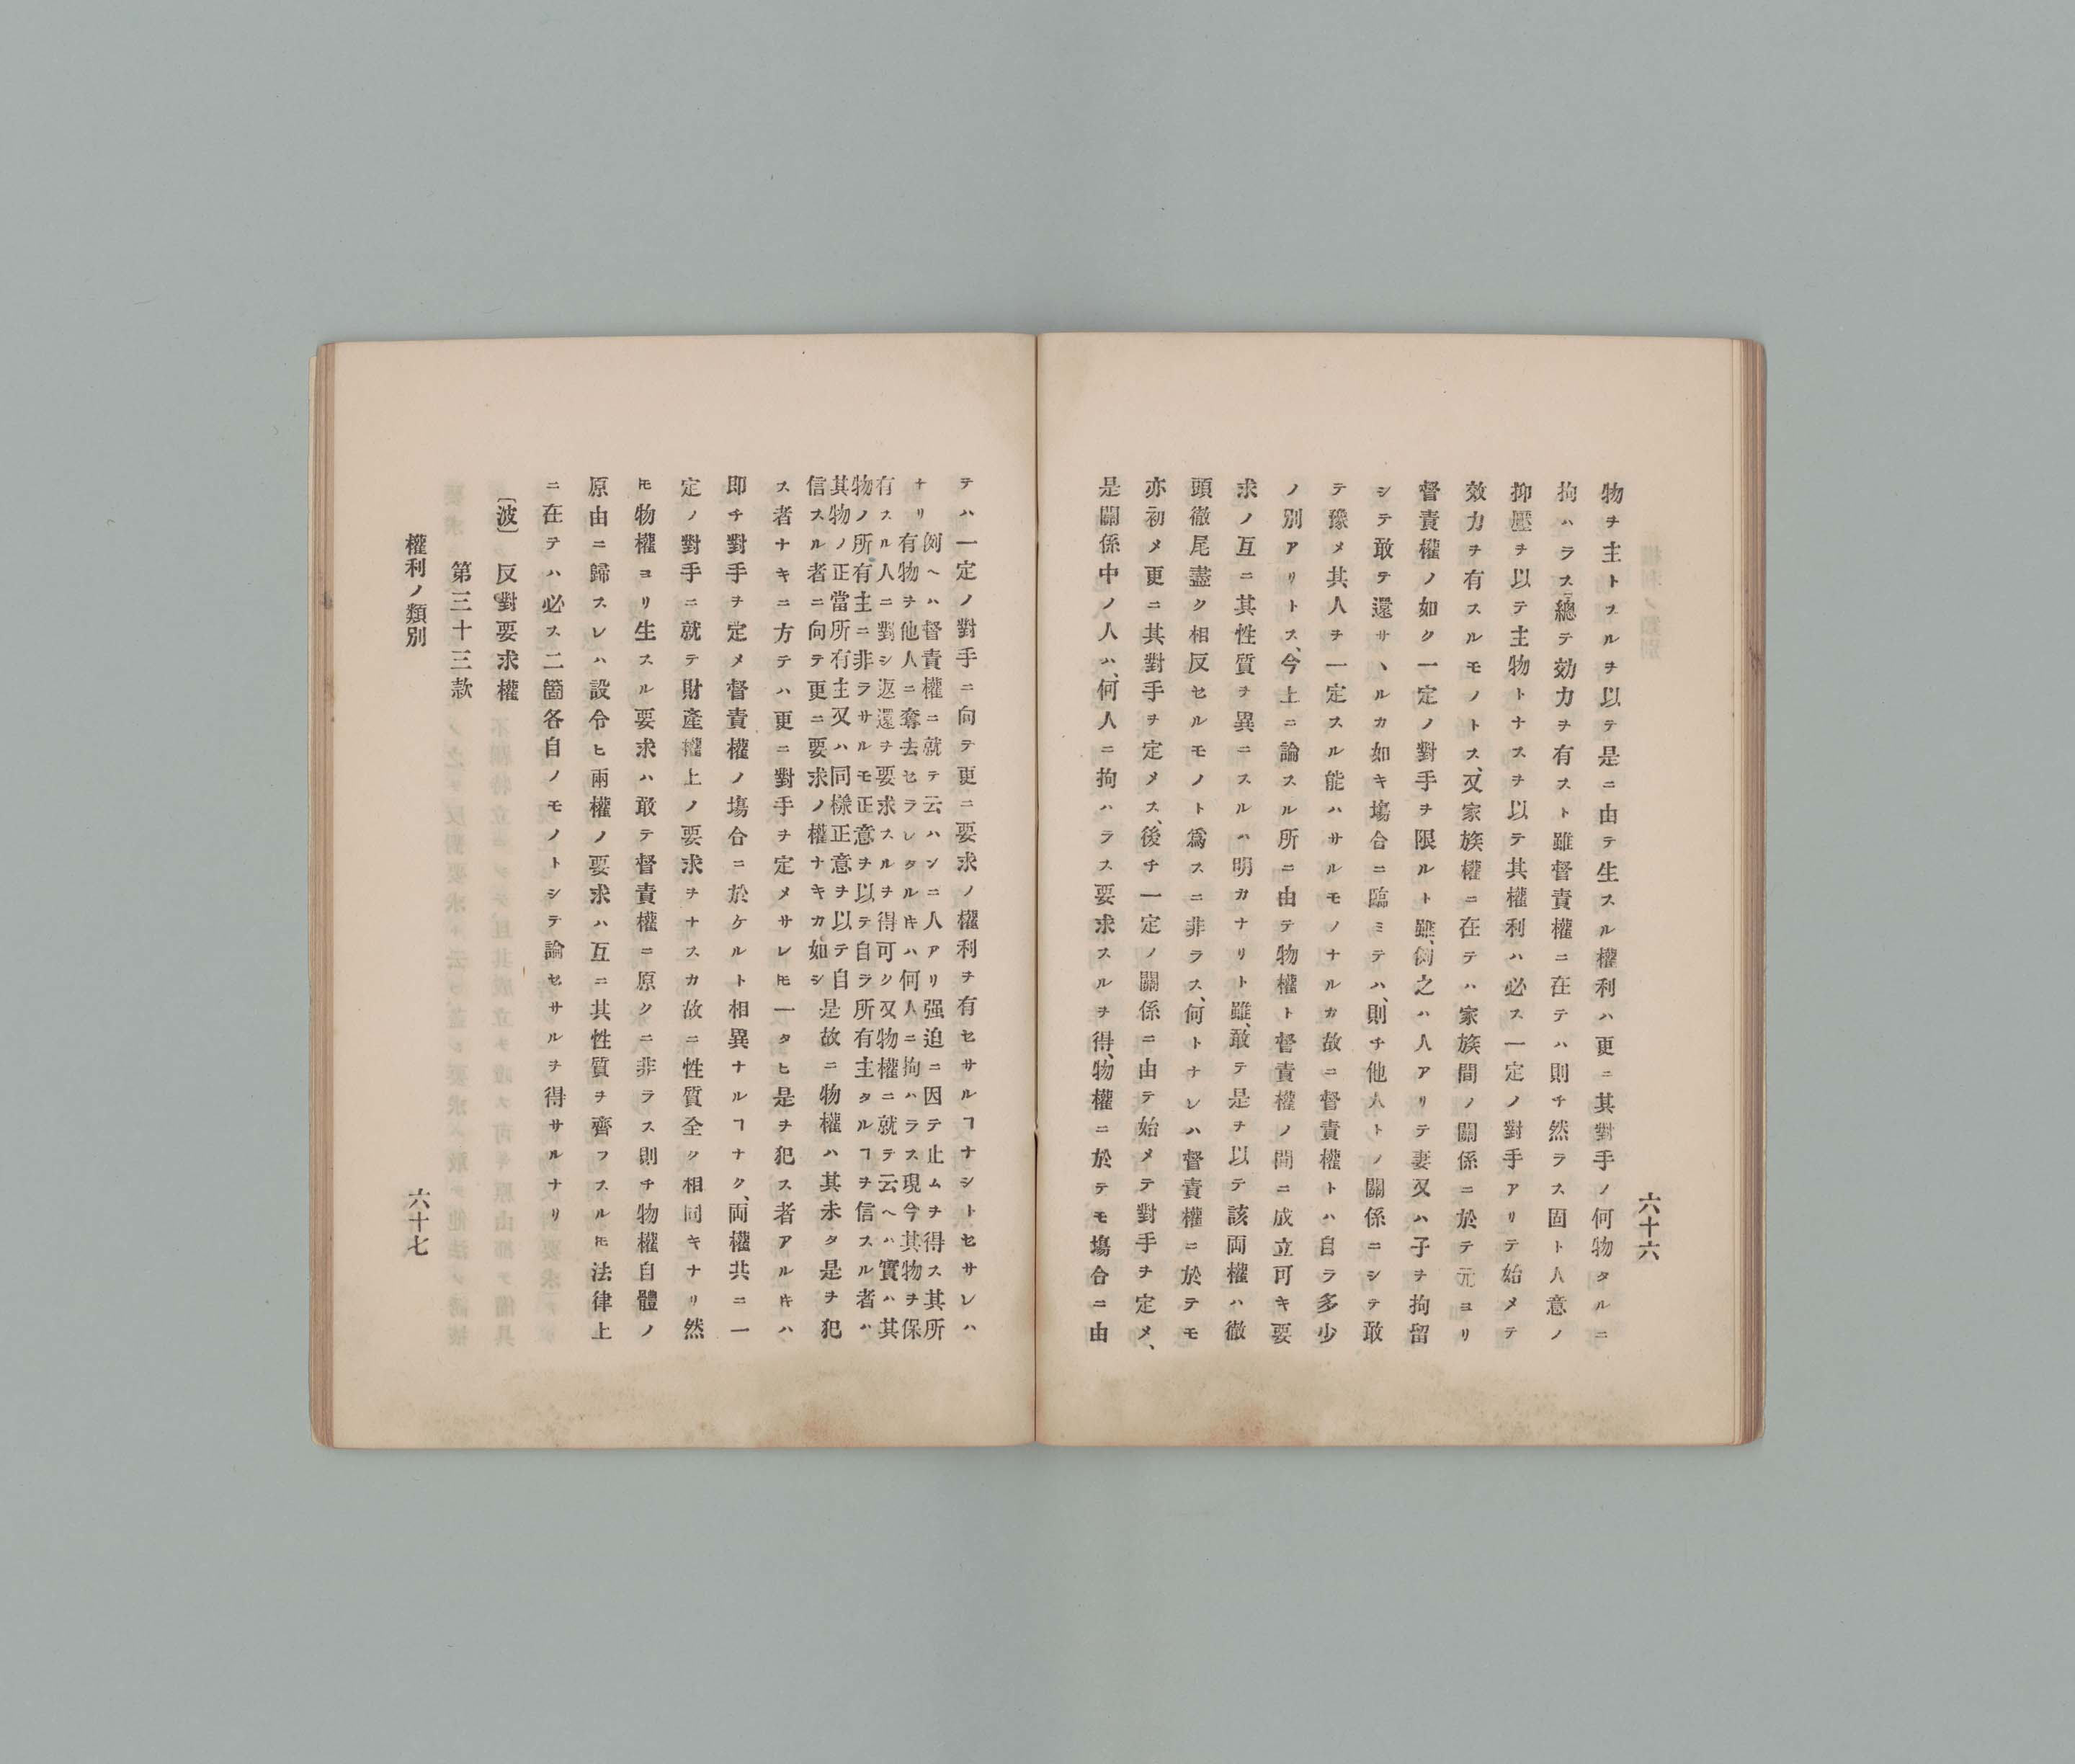 六十六
物ヲ主トスルヲ以テ是ニ由テ生スル權利ハ更ニ其對手ノ何物タルニ
拘ハラス總テ効力ヲ有スト雖督責權ニ在テハ則チ然ラス固ト人意ノ
抑壓ヲ以テ主物トナスヲ以テ其權利ハ必ス一定ノ對手アリテ始メテ
效力ヲ有スルモノトス、又家族權ニ在テハ家族間ノ關係ニ於テ元ヨリ
督責權ノ如ク一定ノ對手ヲ限ルト雖、例之ハ人アリテ妻又ハ子ヲ拘留
シテ敢テ還サヽルカ如キ塲合ニ臨ミテハ、則チ他人トノ關係ニシテ敢
テ豫メ其人ヲ一定スル能ハサルモノナルカ故ニ督責權トハ自ラ多少
ノ別アリトス、今上ニ論スル所ニ由テ物權ト督責權ノ間ニ成立可キ要
求ノ互ニ其性質ヲ異ニスルハ明カナリト雖、敢テ是ヲ以テ該両權ハ徹
頭徹尾盡ク相反セルモノト爲スニ非ラス、何トナレハ督責權ニ於テモ
亦初メ更ニ其對手ヲ定メス、後チ一定ノ關係ニ由テ始メテ對手ヲ定メ、
是關係中ノ人ハ、何人ニ拘ハラス要求スルヲ得、物權ニ於テモ塲合ニ由
テハ一定ノ對手ニ向テ更ニ要求ノ權利ヲ有セサルヿナシトセサレハ
ナリ 例ヘハ督責權ニ就テ云ハンニ人アリ强迫ニ因テ止ムヲ得ス其所
有物ヲ他人ニ奪去セラレタルキハ何人ニ拘ハラス現今其物ヲ保
有スル人ニ對シ返還ヲ要求スルヲ得可ク又物權ニ就テ云ヘハ實ハ其
物ノ所有主ニ非ラサルモ正意ヲ以テ自ラ所有主タルヿヲ信スル者ハ
其物ノ正當所有主又ハ同樣正意ヲ以テ自
信スル者ニ向テ更ニ要求ノ權ナキカ如シ 是故ニ物權ハ其未タ是ヲ犯
ス者ナキニ方テハ更ニ對手ヲ定メサレ𪜈一タヒ是ヲ犯ス者アルキハ
即チ對手ヲ定メ督責權ノ塲合ニ於ケルト相異ナルヿナク、両權共ニ一
定ノ對手ニ就テ財產權上ノ要求ヲナスカ故ニ性質全ク相同キナリ然
𪜈物權ヨリ生スル要求ハ敢テ督責權ニ原クニ非ラス則チ物權自體ノ
原由ニ歸スレハ設令ヒ兩權ノ要求ハ互ニ其性質ヲ齊フスル𪜈法律上
ニ在テハ必ス二箇各自ノモノトシテ論セサルヲ得サルナリ
〔波〕 反對要求權
第三十三款
權利ノ類別
六十七